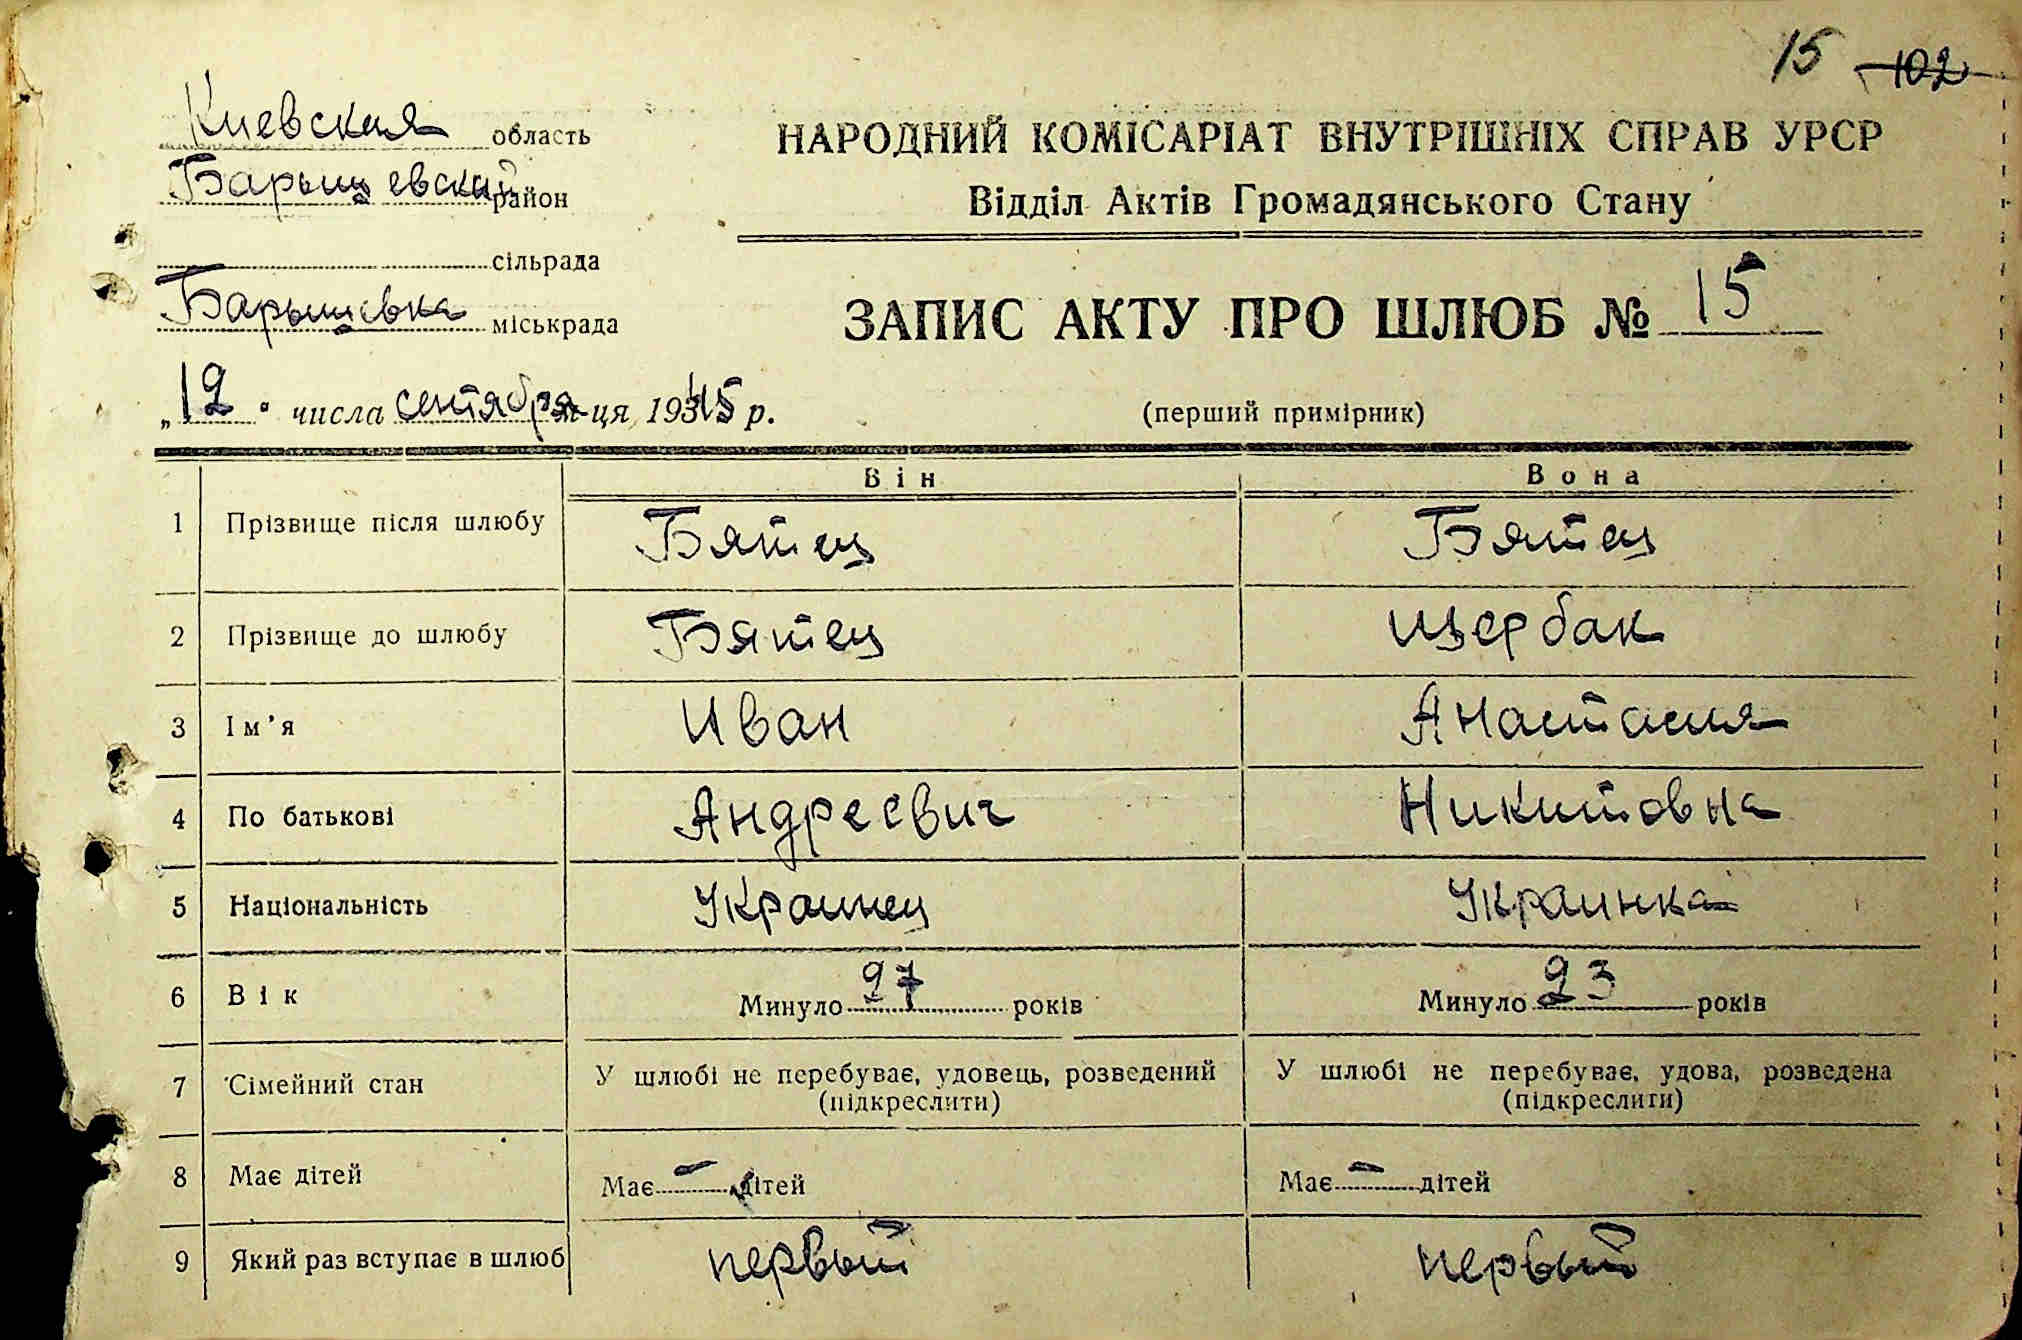 15 102
Киевская область
Барышевский район
сільрада
Барышевка міськрада
„12" числа сентября м-ця, 1945 р.
НАРОДНИЙ КОМІСАРІАТ ВНУТРІШНІХ СПРАВ УРСР
Відділ Актів Громадянського Стану
ЗАПИС АКТУ ПРО ШЛЮБ № 15
(перший примірник)
Він Вона
1 Прізвище після шлюбу Бятец Бятец
2 Прізвище до шлюбу Бятец Щербак
3 Ім'я Иван Анастасия
4 По батькові Андреевич Никитовна
5 Національність Украинец Украинка
6 Вік Минуло 27 років Минуло 23 років
7 Сімейний стан У шлюбі не перебуває, удовець, розведений У шлюбі не перебуває, удова, розведена
(підкреслити) (підкреслити)
8 Має дітей Має — дітей Має — дітей
9 Який раз вступає в шлюб первый первый